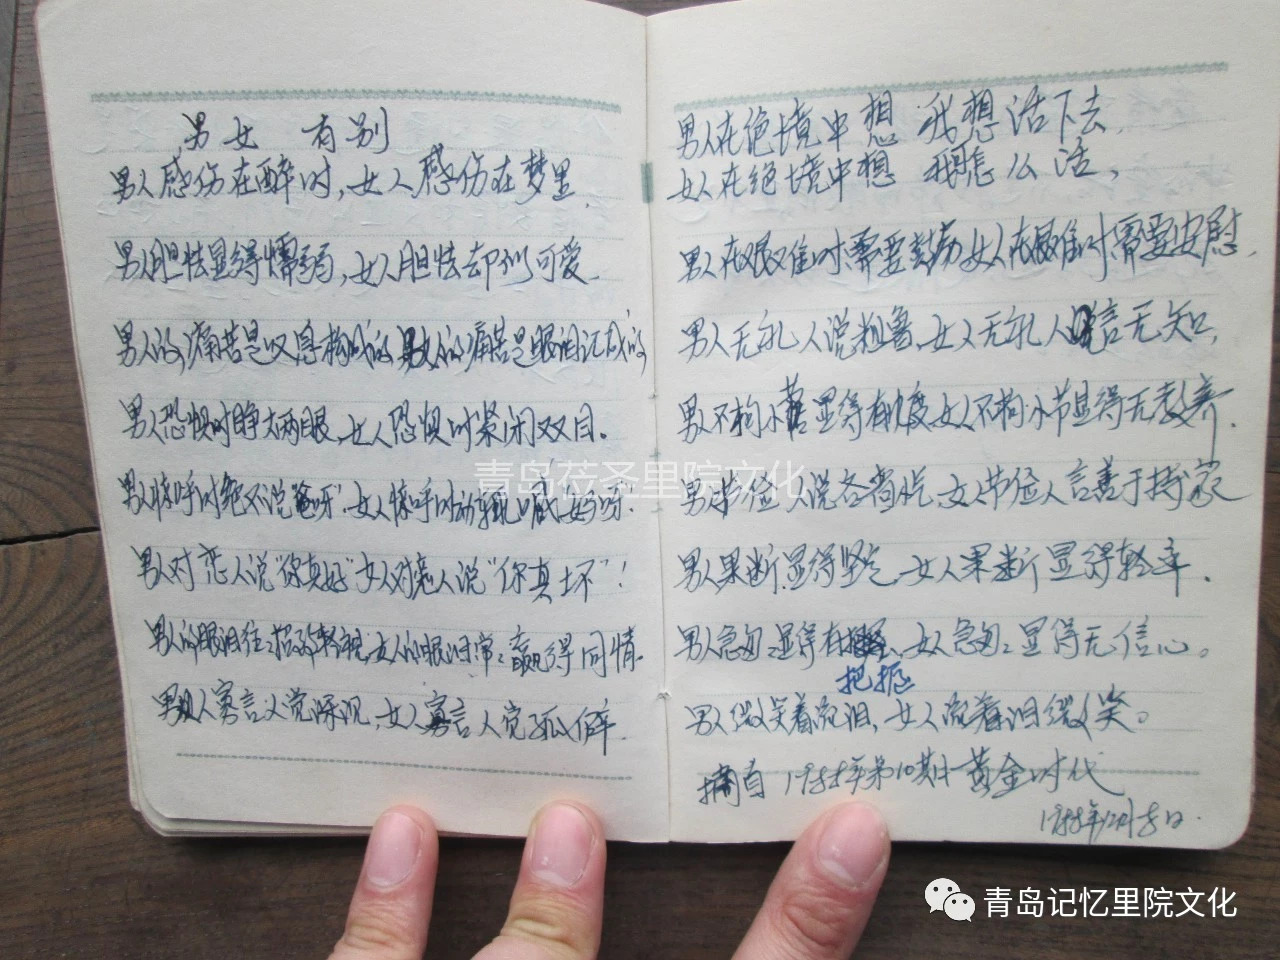 男女有别
男人感伤在醉时，女人感伤在梦里.
男人胆怯显得懦弱，女人胆怯却以可爱.
男人的痛苦是叹息构成的 女人的痛苦是眼泪记成的
男人恐惧时睁大两眼、女人恐惧时紧闭双目。
男人惊呼时绝不说"爸呀"、女人惊呼时动辄喊"妈呀".
男人对恋人说"你真好"女人对恋人说"你真坏"！
男人的眼泪往往招致轻视、女人的眼泪常常赢得同情.
男人寡言人觉深沉、女人寡言人觉孤僻.
男人在绝境中想 我想活下去、
女人在绝境中想 我怎么活，
男人在艰难时需要鼓励 女人在艰难时需要安慰.
男人无礼人说粗鲁、女人无礼人言无知.
男人不拘小节显得有风度 女人不拘小节显得无教养.
男人节俭人说吝啬 女人节俭人言善于持家
男人果断显得坚定、女人果断显得轻率.
男人急匆匆显得有把握、女人急匆匆显得无信心。
把握
男人微笑着流泪、女人流着泪微笑。
摘自 1988年第10期 黄金时代
1988年12月8日.
青岛莅圣里院文化
青岛记忆里院文化